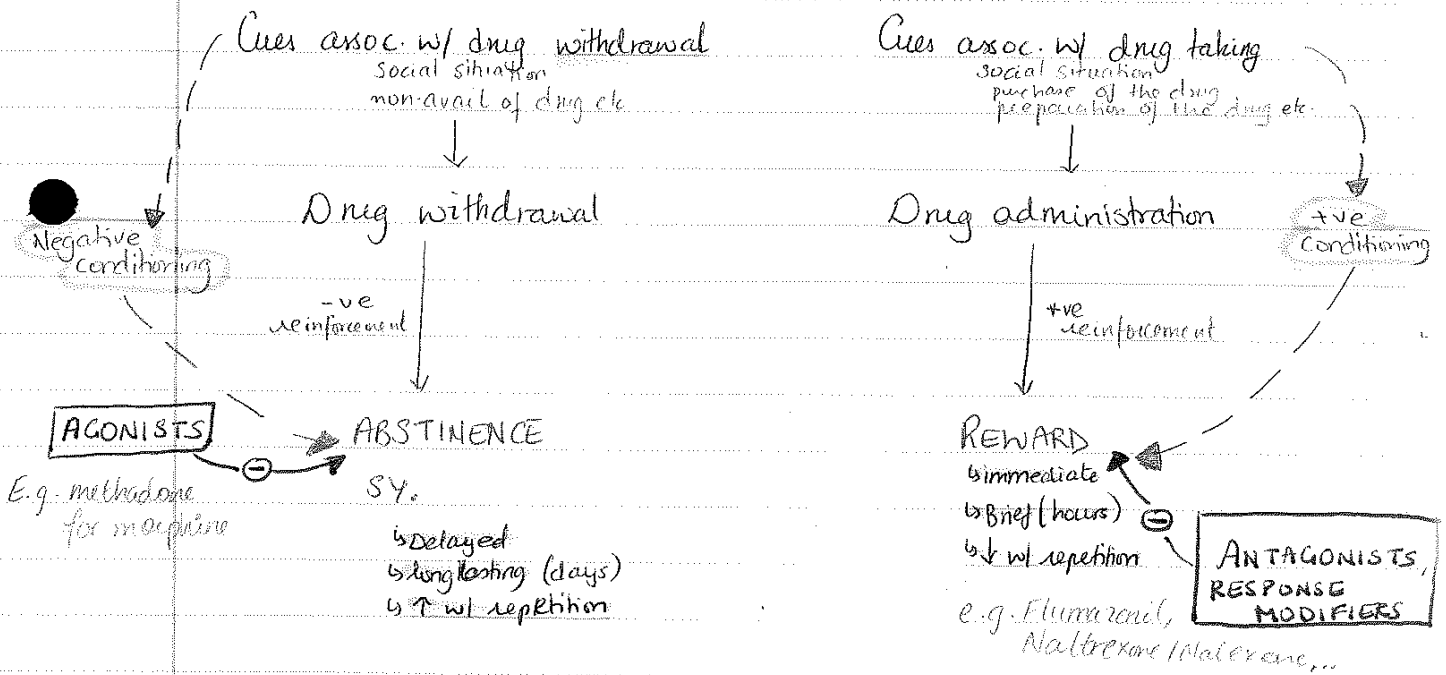 Cues assoc. w/ drug withdrawal
social situation
non-avail of drug etc
Drug withdrawal
Negative
conditioning
-ve
reinforcement
AGONISTS
E.g. methadone
for morphine
ABSTINENCE
SY.
↳Delayed
↳long lasting (days)
↳↑ w/ repetition
Cues assoc. w/ drug taking
social situation
purchase of the drug
preparation of the drug etc.
Drug administration
+ve
conditioning
+ve
reinforcement
REWARD
↳immediate
↳Brief (hours)
↳↓ w/ repetition
ANTAGONISTS,
RESPONSE
MODIFIERS
e.g. Flumazenil,
Naltrexone/Nalexene,...